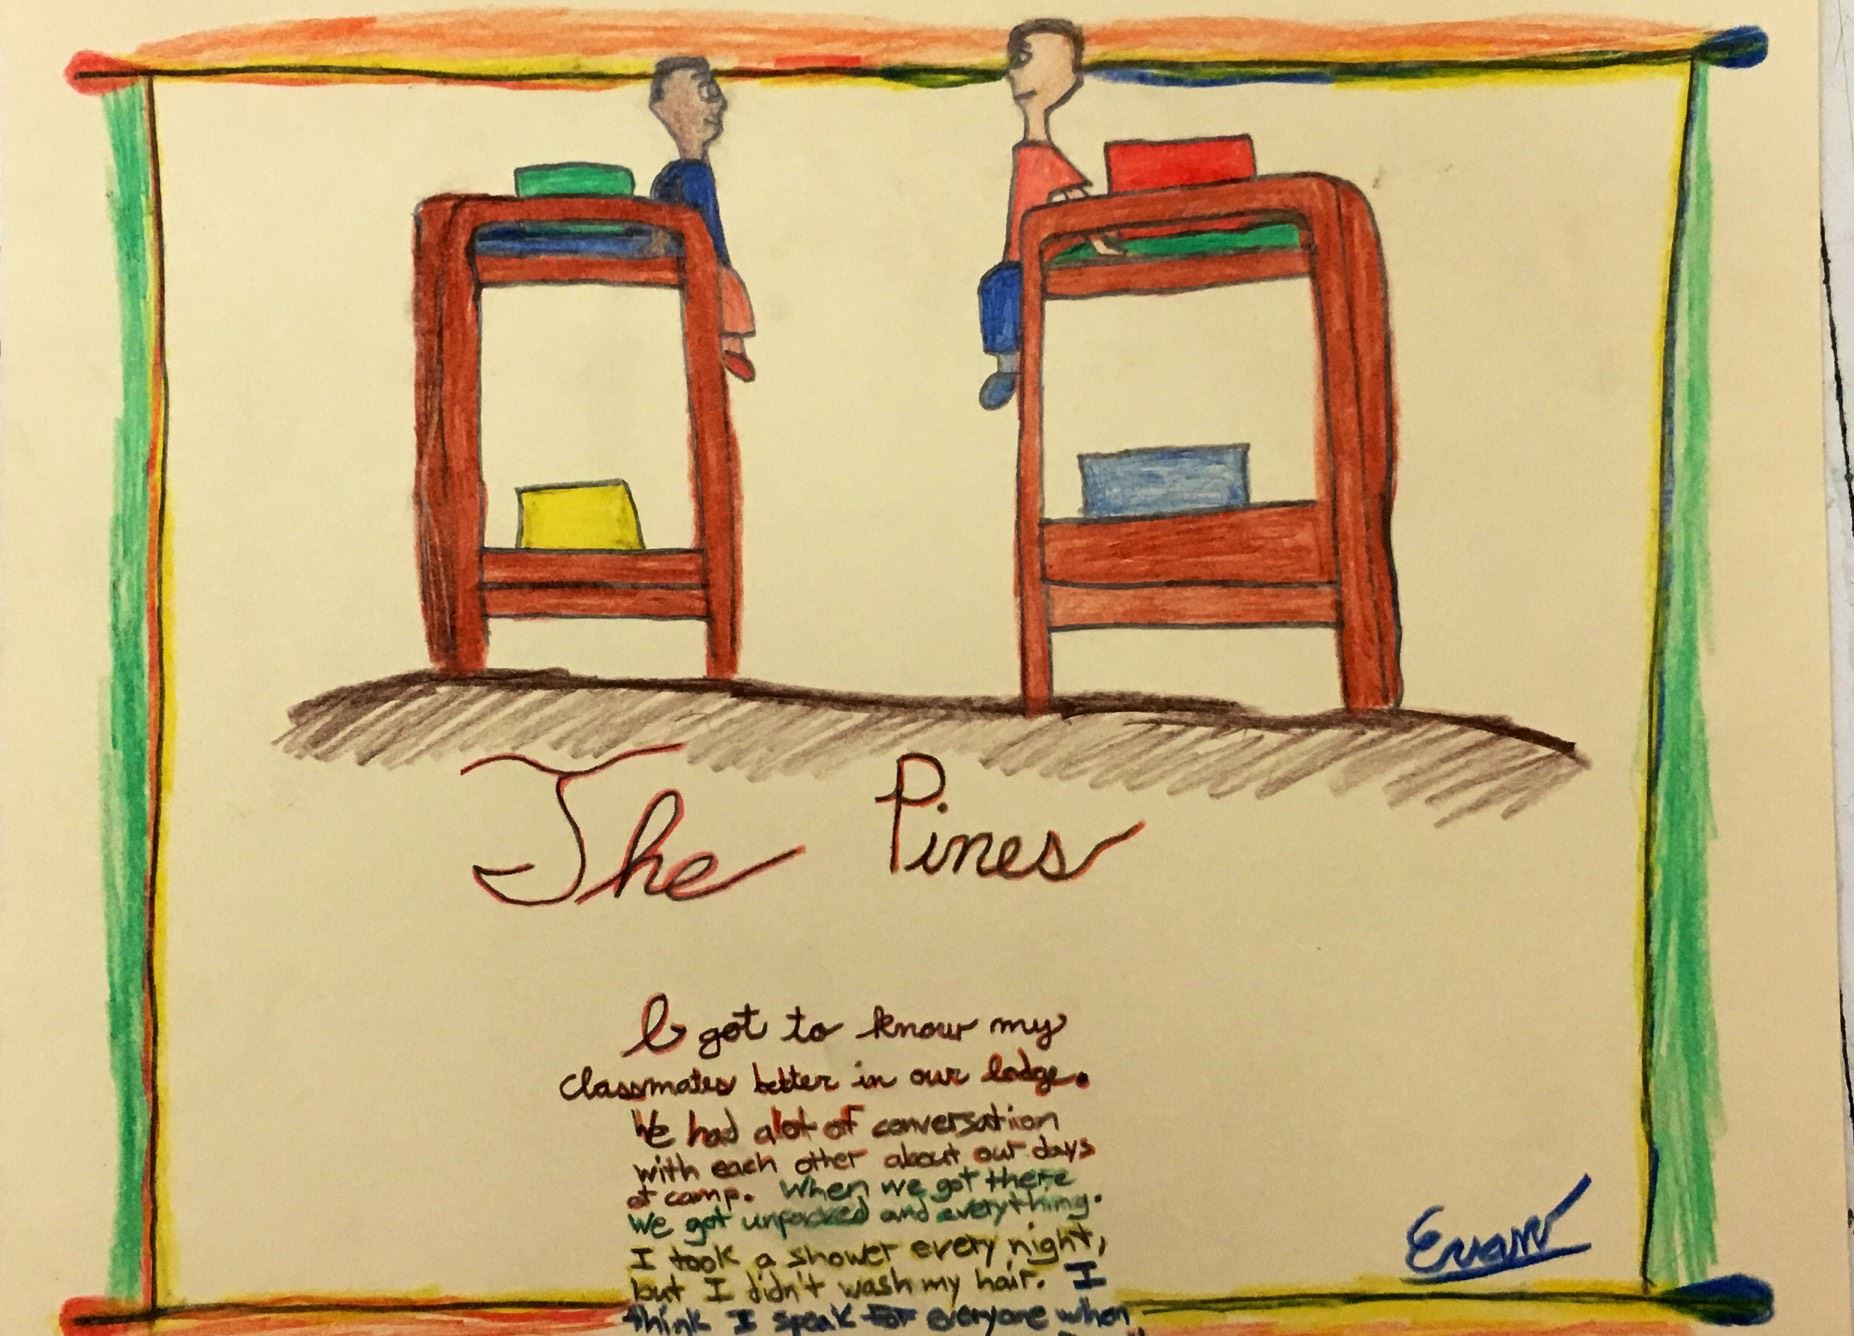 The Pines
I got to know my
classmates better in our lodge.
We had alot of conversation
with each other about our days
at camp. When we got there
we got unpacked and everything.
I took a shower every night,
but I didn't wash my hair. I
think I speak for everyone when
Evan